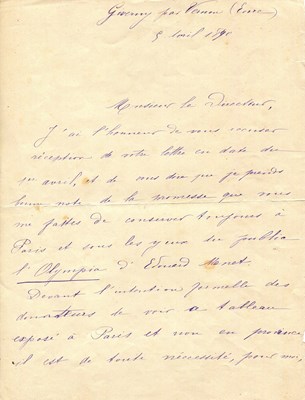 Giverny par Vernon (Eure)
5 avril 1890
Monsieur le Directeur,
J'ai l'honneur de vous accuser
réception de votre lettre en date du
avril, et de vous dire que je prends
bonne note de la promesse que vous
me faites de conserver toujours à
Paris et sous les yeux du public
l'Olympia d'Edouard Manet.
Devant l'intention formelle des
donateurs de voir ce tableau
exposé à Paris et non en province,
il est de toute nécessité, pour moi,